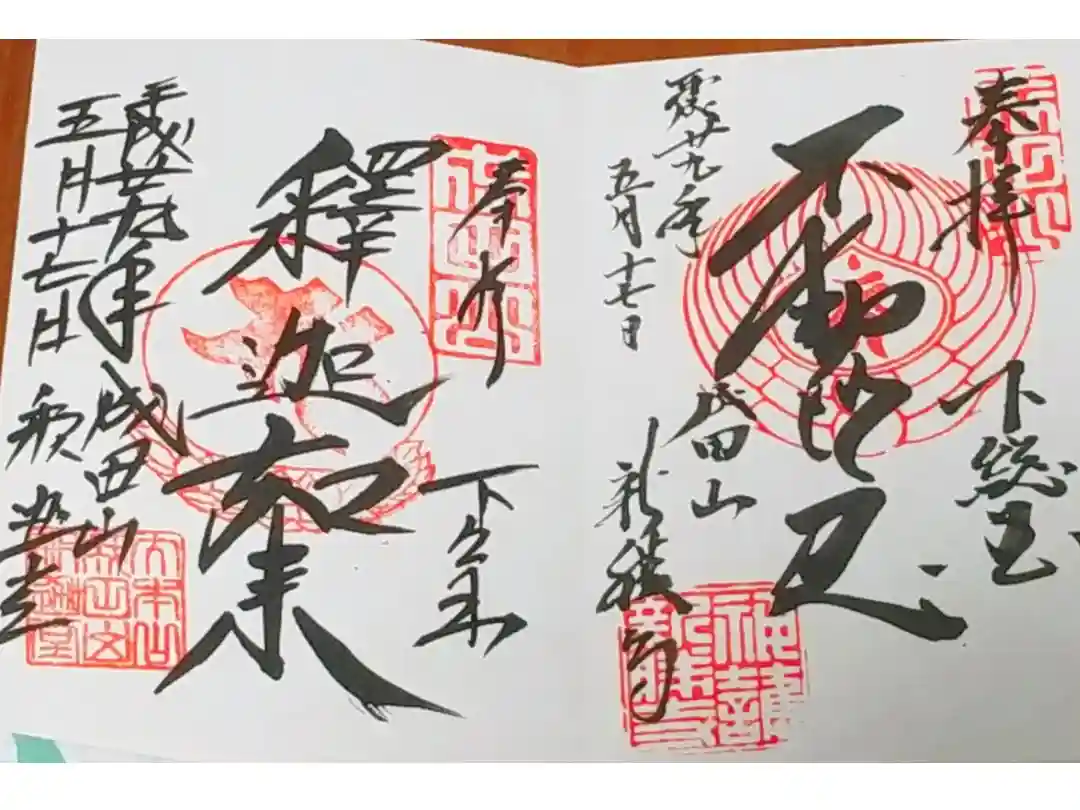 奉拝
下総国
不動明王
廿九年
五月十七日
成田山
新勝寺
奉拝
下総
釋迦如来
平成廿九年
五月十七日
成田山
釈迦堂
成田山
大本山